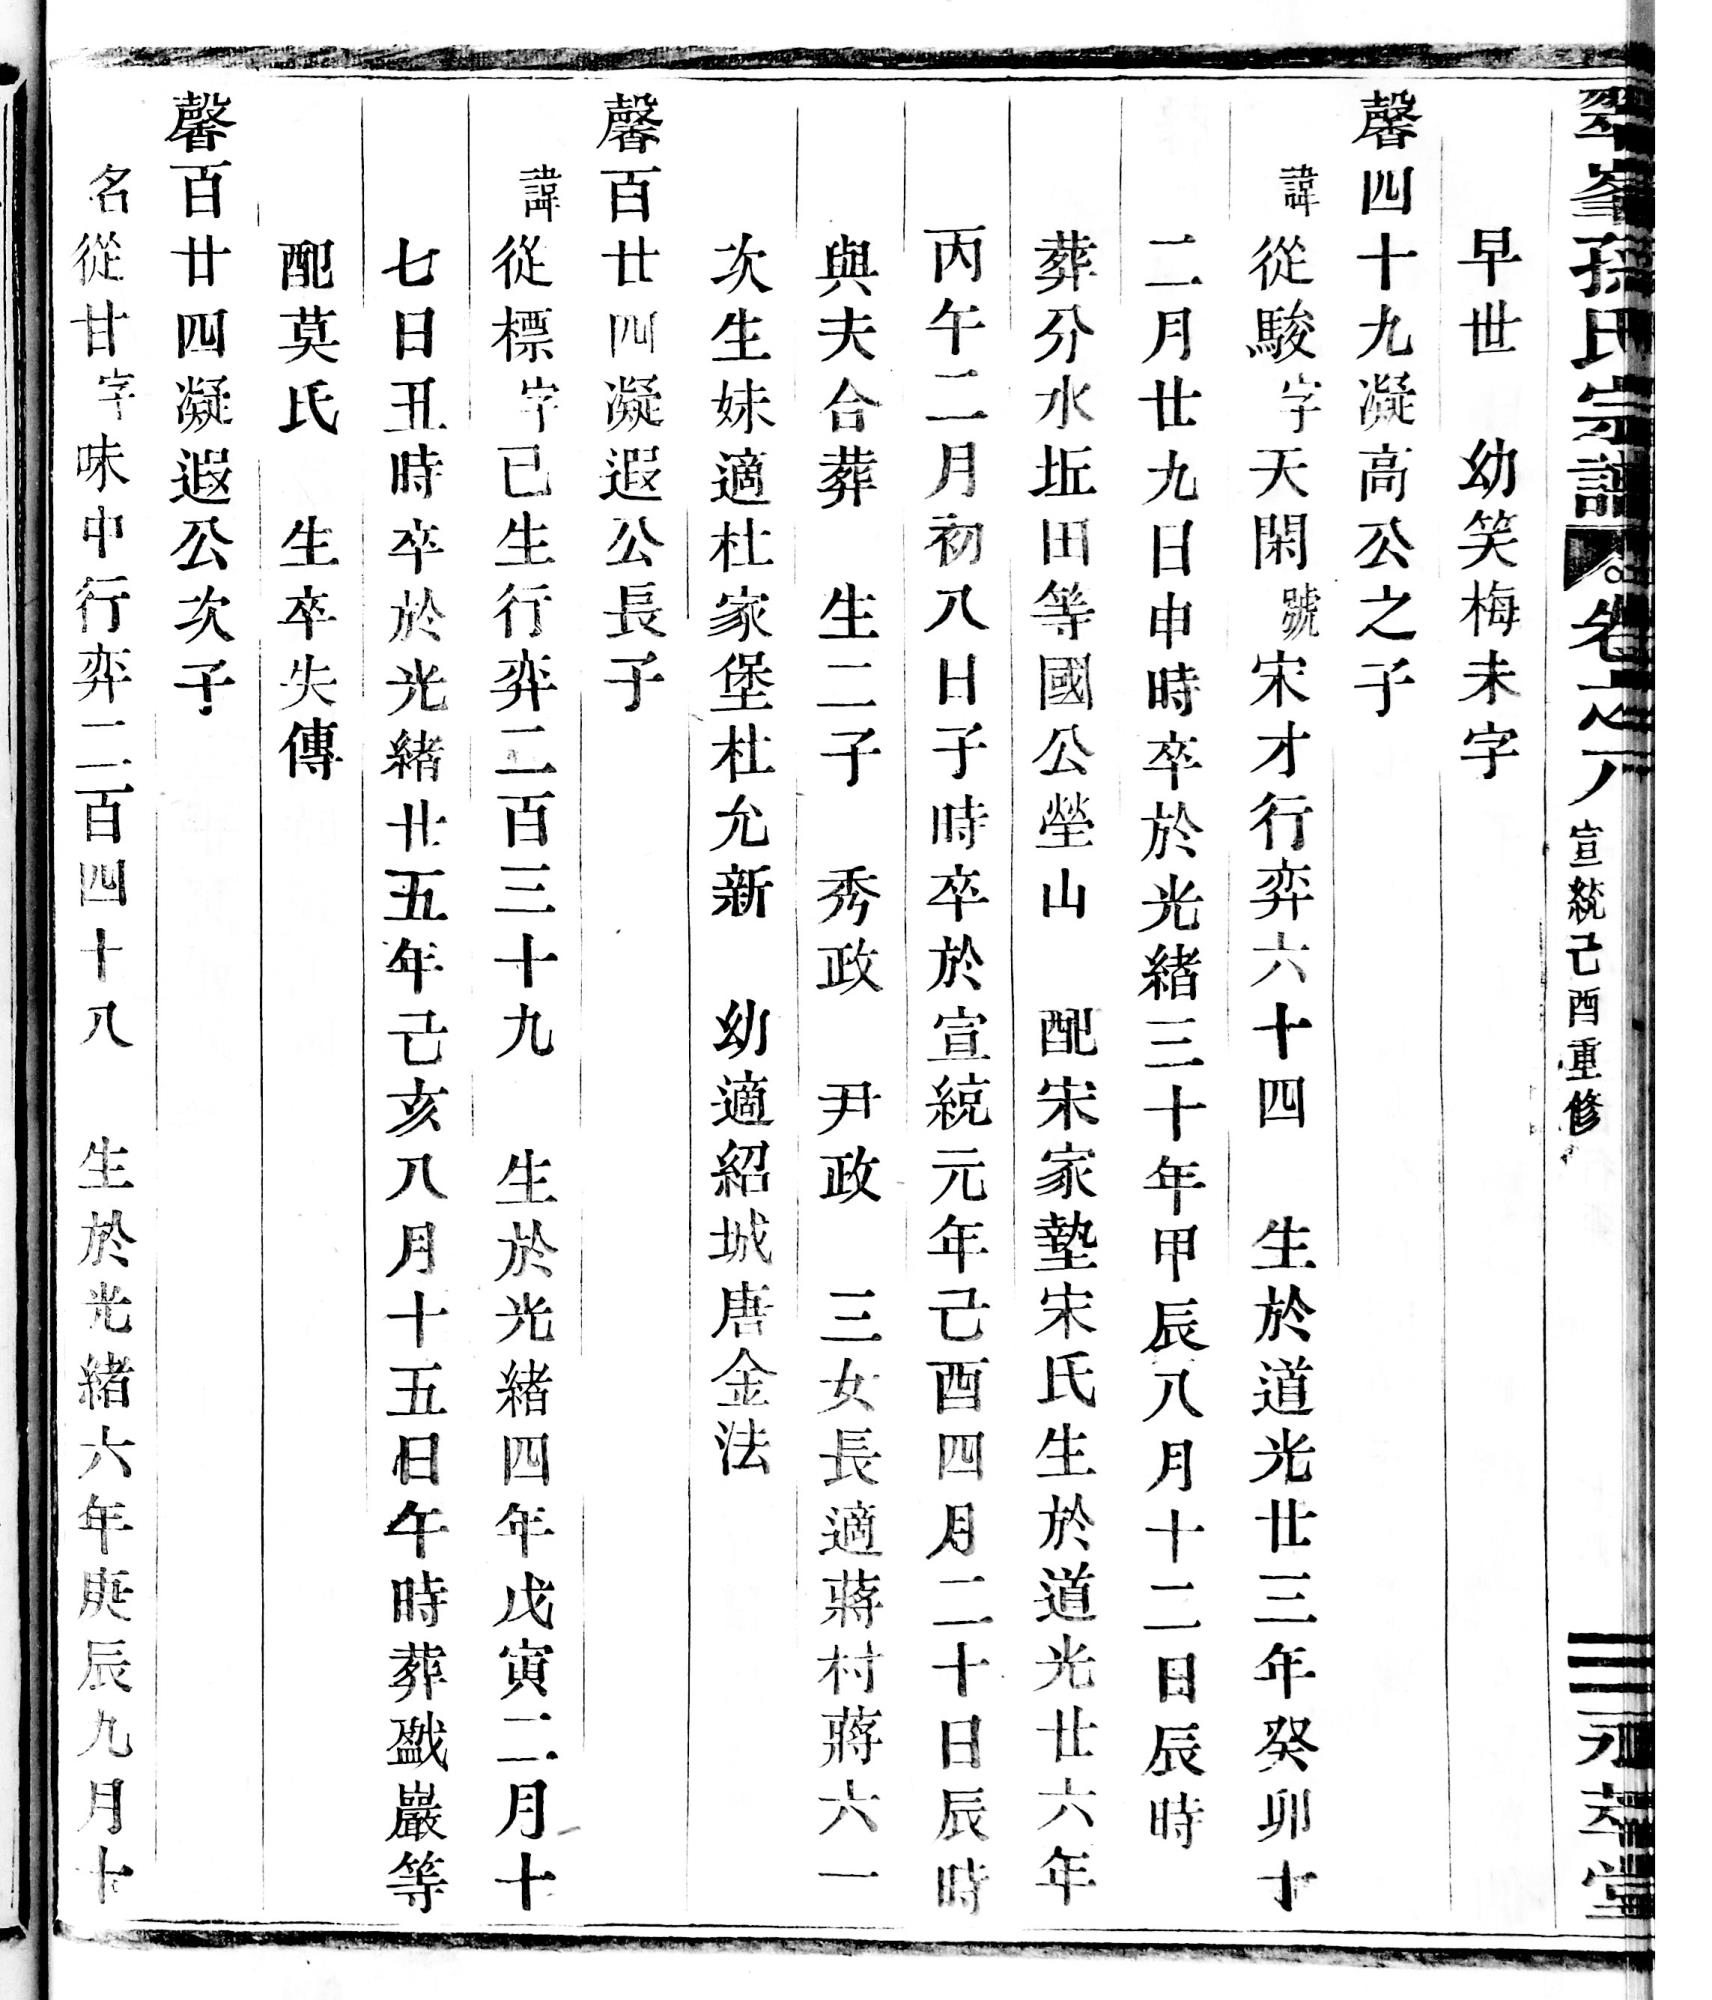 翠峯孫氏宗譜 卷之八 宣統己酉重修 永萃堂
早世 幼笑梅未字
馨四十九凝高公之子
諱從駿字天閑號宋才行弈六十四 生於道光廿三年癸卯十
二月廿九日申時卒於光緒三十年甲辰八月十二日辰時
葬分水坵田等國公塋山 配宋家墊宋氏生於道光廿六年
丙午二月初八日子時卒於宣統元年己酉四月二十日辰時
與夫合葬 生二子 秀政 尹政 三女長適蔣村蔣六一
次生妹適杜家堡杜允新 幼適紹城唐金法
馨百廿四凝遐公長子
諱從標字已生行弈二百三十九 生於光緒四年戊寅二月十
七日丑時卒於光緒廿五年己亥八月十五日午時葬盝巖等
配莫氏 生卒失傳
馨百廿四凝遐公次子
名從甘字味中行弈二百四十八 生於光緒六年庚辰九月十